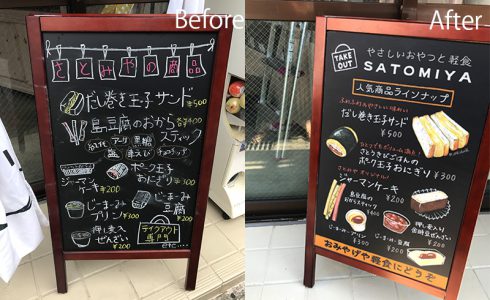 Before
さとみやの商品
だし巻き玉子サンド ¥500
島豆腐のおから
スティック
各¥400
ジャーマン
ケーキ ¥200
ポーク玉子
おにぎり ¥300
じーまーみ
プリン ¥300
じーまーみ
豆腐
¥200
押し麦入
ぜんざい
¥200
テイクアウト
専門
etc...
After
TAKE OUT
やさしいおやつと軽食
SATOMIYA
人気商品ラインナップ
ふわふわやさしい味わい
だし巻き玉子サンド
¥500
さとうきびごはんの
ポーク玉子おにぎり ¥300
ジャーマンケーキ
¥200
島豆腐の
おからスティック
¥400
押し麦入り
金時豆ぜんざい
¥200
じーまーみープリン
¥300
じーまーみー豆腐
¥200
おみやげや軽食にどうぞ